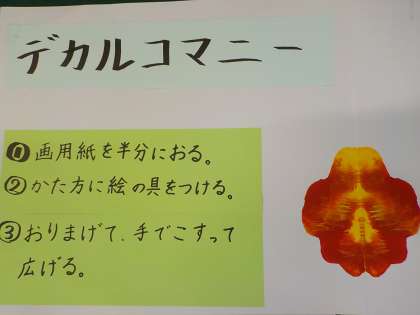 デカルコマニー
❶画用紙を半分におる。
②かた方に絵の具をつける。
③おりまげて、手でこすって
広げる。